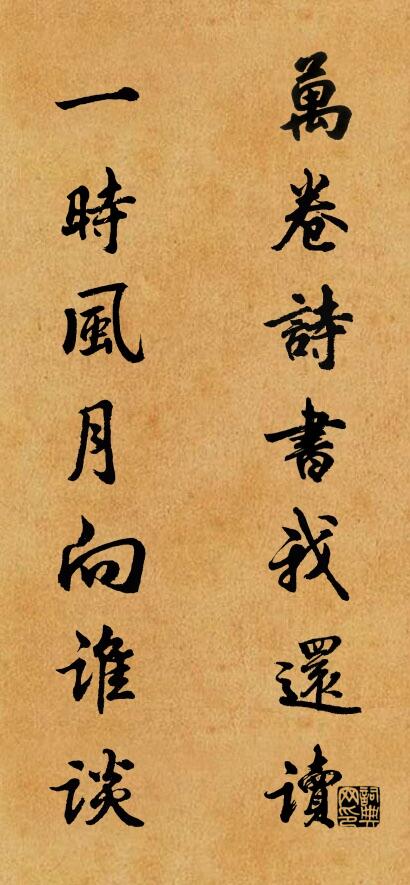 萬卷詩書我還讀
一時風月向谁谈
詞典网印